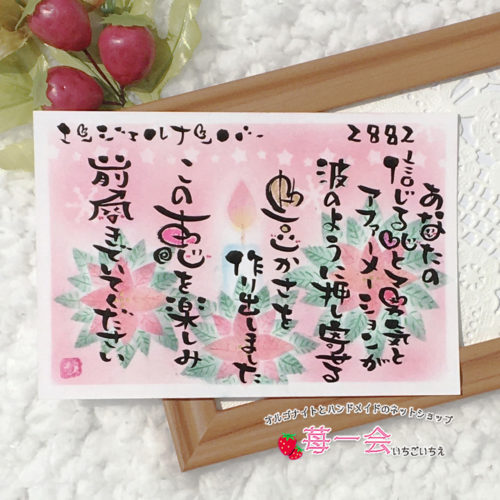 エンジェルナンバー 2882
あなたの
信じる心と勇気と
アファーメーションが
波のように押し寄せる
豊かさを
作り出しました
この恵を楽しみ
前向きでいてください
オルゴナイトとハンドメイドのネットショップ
苺一会 いちごいちえ